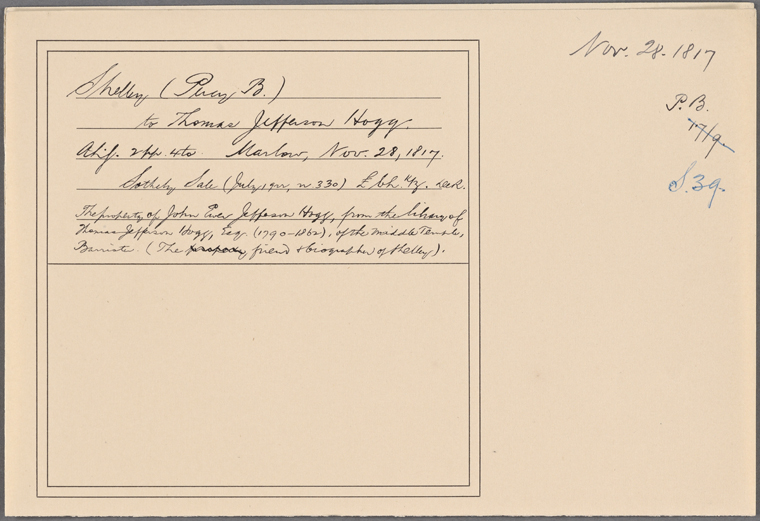 Nov. 28. 1817
P. B.
S. 39.
Shelley (Percy B.)
to Thomas Jefferson Hogg.
2 pp. 4to. Marlow, Nov. 28, 1817.
Sotheby Sale (July 1922, no 330) £
The property of John Ever Jefferson Hogg, from the library of
Thomas Jefferson Hogg, Esq. (1790-1862), of the Middle Temple,
Barrister (The friend & biographer of Shelley).